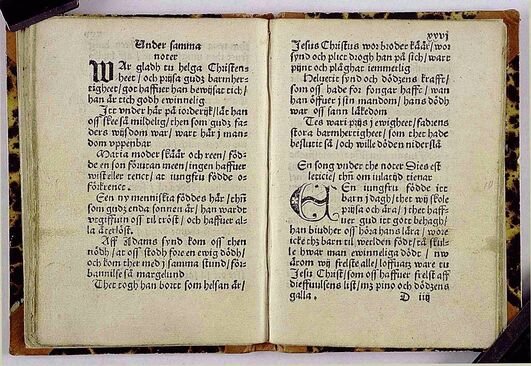 Under samma
noter
WAr gladh tu helga Christen-
heet / och prijsa gudz barmher-
tigheet / got haffuer han bewijsat tich /
han är tich godh ewinnelig
Itt under här på iorderijk / lät han
oss skee så mildelig / then som gudz fa-
ders wijsdom war / wart här i man-
dom vppenbar
Maria moder skäär och reen / föd-
de en son förutan meen / ingen haffuer
wist eller tenct / at iungfru födde o-
förkrenct.
Een ny menniska föddes här / thñ
som gudz enda sonnen är / han wardt
vtgiffuin oss til tröst / och haffuer al-
la återlöst.
Aff Adams synd kom oss then
nödh / at oss stodh före en ewig dödh /
och kom ther med j samma stund / för-
bannilse så margelund
Thet togh han bortt som helsan är /
xxvj
Jesus Christus wor broder käär / wor
synd och plict drogh han på sich / wart
pijnt och plåghat iemmerlig
Heluetit synd och dödzens krafft /
som oss hade for fongar hafft / wan
han öffuer j sin mandom / hans dödh
war oss sann läkedom
Tes wari prijs j ewigheet / fadrens
stora barmhertigheet / som thet hade
beslutit så / och wille döden nidersla
En song vnder the noter Dies est
leticie / thñ om iulatijd tienar
EEn iungfru födde itt
barn j dagh / thet wij skole
prijsa och ära / j thet haff-
uer gud itt gott behagh /
han biudher oss höra hans lära / wore
icke thz barn til werlden födt / tå skul-
le hwar man ewinneliga dödt / nw
ärom wij frelste alle / loffuatz ware tu
Jesu Christ / som oss haffuer frelst aff
dieffuulsens list / mz pino och dödzens
galla.
D iiij